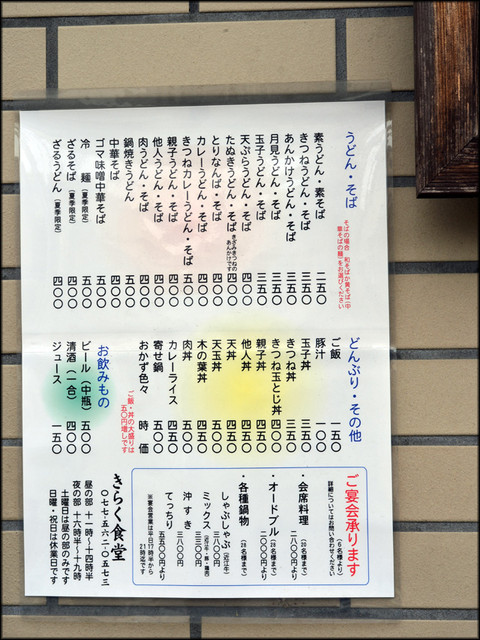 うどん・そば
そばの場合 和そばか黄そば(中
華そばの麺)をお選びください
素うどん・素そば 二五〇
きつねうどん・そば 三五〇
あんかけうどん・そば 三五〇
月見うどん・そば 三五〇
玉子うどん・そば 三五〇
天ぷらうどん・そば 四〇〇
たぬきうどん・そば きざみきつねのあんかけです 四〇〇
とりなんば・そば 四〇〇
カレーうどん・そば 四〇〇
きつねカレーうどん・そば 五〇〇
親子うどん・そば 四〇〇
他人うどん・そば 四〇〇
肉うどん・そば 四〇〇
鍋焼きうどん 五〇〇
中華そば 四〇〇
ゴマ味噌中華そば 五〇〇
冷 麺(夏季限定) 五〇〇
ざるそば(夏季限定) 四〇〇
ざるうどん(夏季限定) 四〇〇
どんぶり・その他
ご飯 一五〇
豚汁 一〇〇
玉子丼 三五〇
きつね丼 三五〇
きつね玉とじ丼 四〇〇
親子丼 四五〇
他人丼 四五〇
天丼 四五〇
天玉丼 五〇〇
木の葉丼 四五〇
肉丼 五〇〇
カレーライス 四五〇
寄せ鍋 五〇〇
おかず色々 時 価
ご飯・丼の大盛りは
五〇円増しです
お飲みもの
ビール(中瓶) 五〇〇
清酒(一合) 四〇〇
ジュース 一五〇
ご宴会承ります
詳細についてはお問い合わせください
(6名様より)
・会席料理 (20名様まで)
二八〇〇円より
・オードブル (28名様まで)
二〇〇〇円より
・各種鍋物 (28名様まで)
しゃぶしゃぶ (近江牛) 三八〇〇円
ミックス (近江牛・豚・鶏肉) 三三〇〇円
沖 す き 三八〇〇円
てっちり 五五〇〇円より
※宴会営業は平日17時半から
21時迄です
きらく食堂
〇七七-五六二-〇五七三
昼の部 十一時~十四時半
夜の部 十六時半~十九時
土曜日は昼の部のみです
日曜・祝日は休業日です